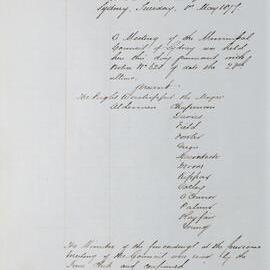 Sydney, Tuesday, 1st May 1877.
A Meeting of the Municipal
Council of Sydney was held
here this day pursuant
Notice No of date the 28th
ultimo.
Present
The Right Worshipful the Mayor
Aldermen Chapman
Davies
Field
Fowler
Green
Murdock
Moore
Oatley
O'Connor
Palmer
Playfair
Young
The Minutes of the proceedings at the previous
Meeting of the Council was read by the
Town Clerk and confirmed